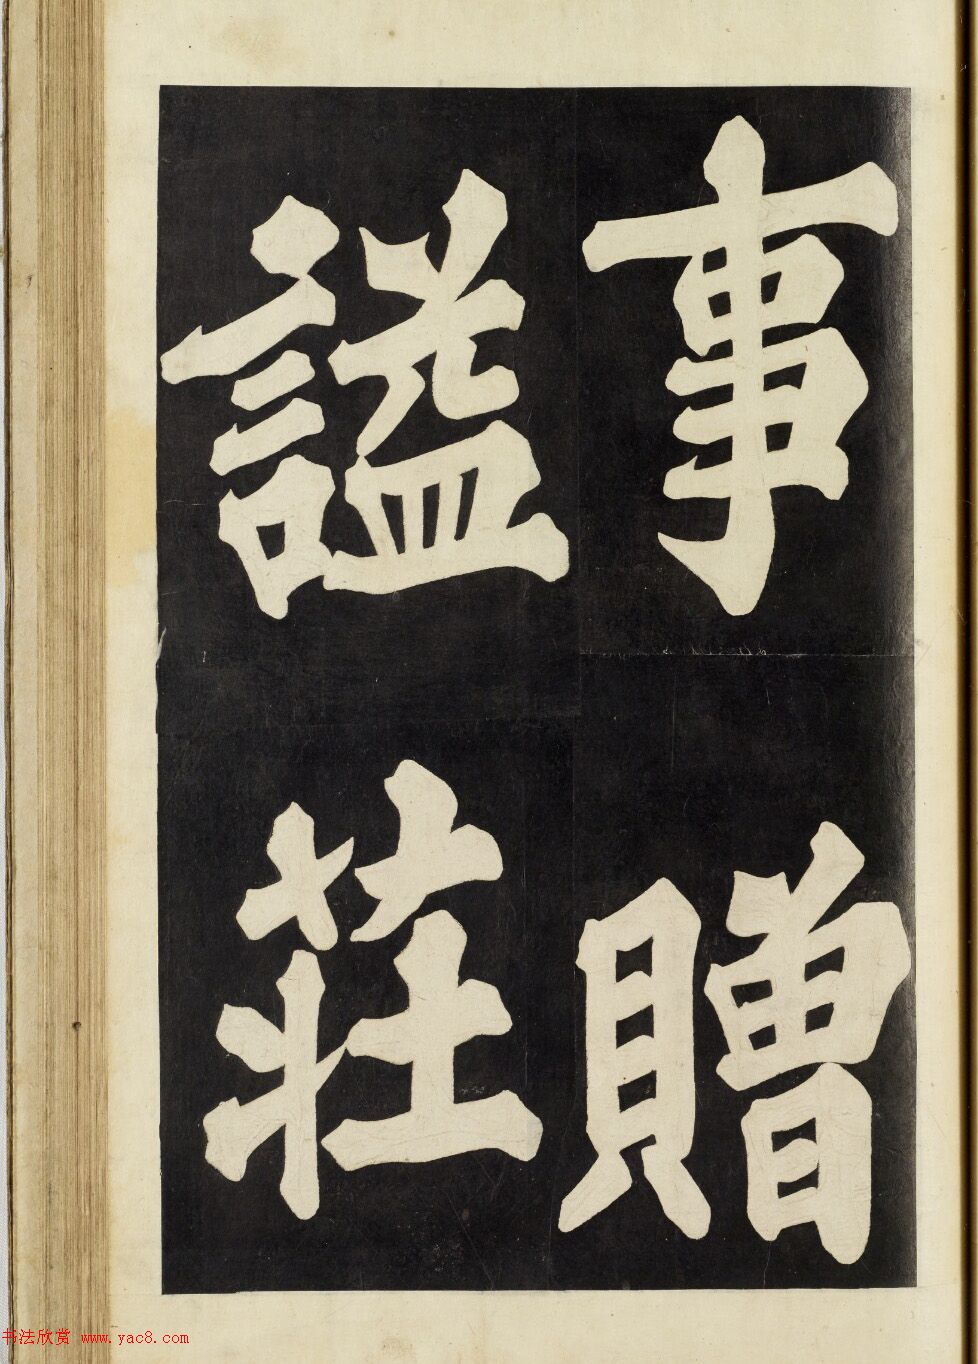 事贈
謚莊
书法欣赏 www.yac8.com